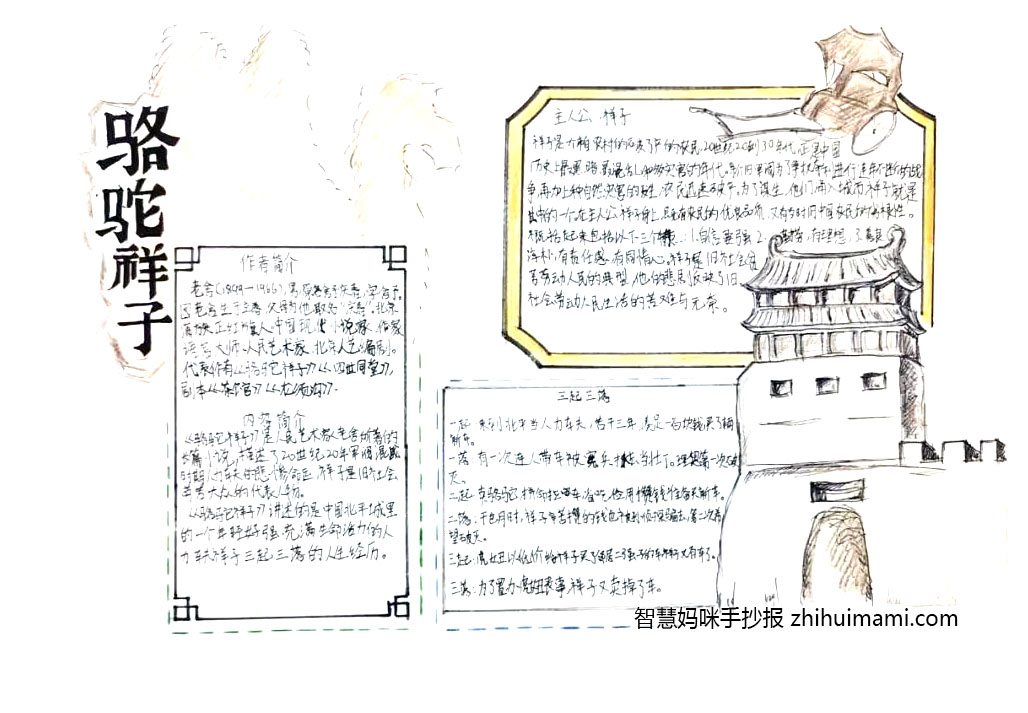 骆驼祥子
作者简介
老舍(1899—1966),原名舒庆春,字舍予。
因老舍生于立春,父母为他取名"庆春"。北京
满族正红旗人。中国现代小说家、作家
语言大师、人民艺术家、北京人艺编剧。
代表作有《骆驼祥子》《四世同堂》,
剧本《茶馆》《龙须沟》。
内容简介
《骆驼祥子》是人民艺术家老舍所著的
长篇小说,描述了20世纪20年军阀混战
时期人力车夫的悲惨命运。祥子是旧社会
劳苦大众的代表人物。
《骆驼祥子》讲述的是中国北平城里
的一个年轻好强、充满生命活力的人
力车夫祥子三起三落的人生经历。
主人公:祥子
祥子是 农村的 破了产的农民,20世纪20到30年代,正是中国
历史上最黑暗、最混乱 多灾害的年代。 军阀为了争权夺利进行连年不断的战
争,再加上种自然灾害的 ,农民迅速破产。为了谋生,他们涌入城市,祥子就是
其中的一个。在主人公祥子身上,具有农民的优良品质,又有当时旧中国农民的 根性。
概括起来包括以下三个 :1.自信要强 2. ,有理想,3.善良
淳朴,有责任感,有同情心。祥子是旧社会
劳苦劳动人民的典型,他的悲剧反映了旧
社会劳动人民生活的苦难与无奈。
三起三落
一起:来到北平当人力车夫,苦干三年,凑足一百块钱,买了辆
新车。
一落:有一次连人带车被 兵 去当壮丁。理想第一次破
灭。
二起:卖骆驼,拼命拉车,省吃俭用攒钱准备买新车。
二落:干包月时,祥子辛苦攒的钱也被 侦探骗去,第二次希
望破灭。
三起:虎妞以低价给祥子买了邻居二强子的车,祥子又有车了。
三落:为了置办虎妞丧事,祥子又卖掉了车。
智慧妈咪手抄报 zhihuimami.com